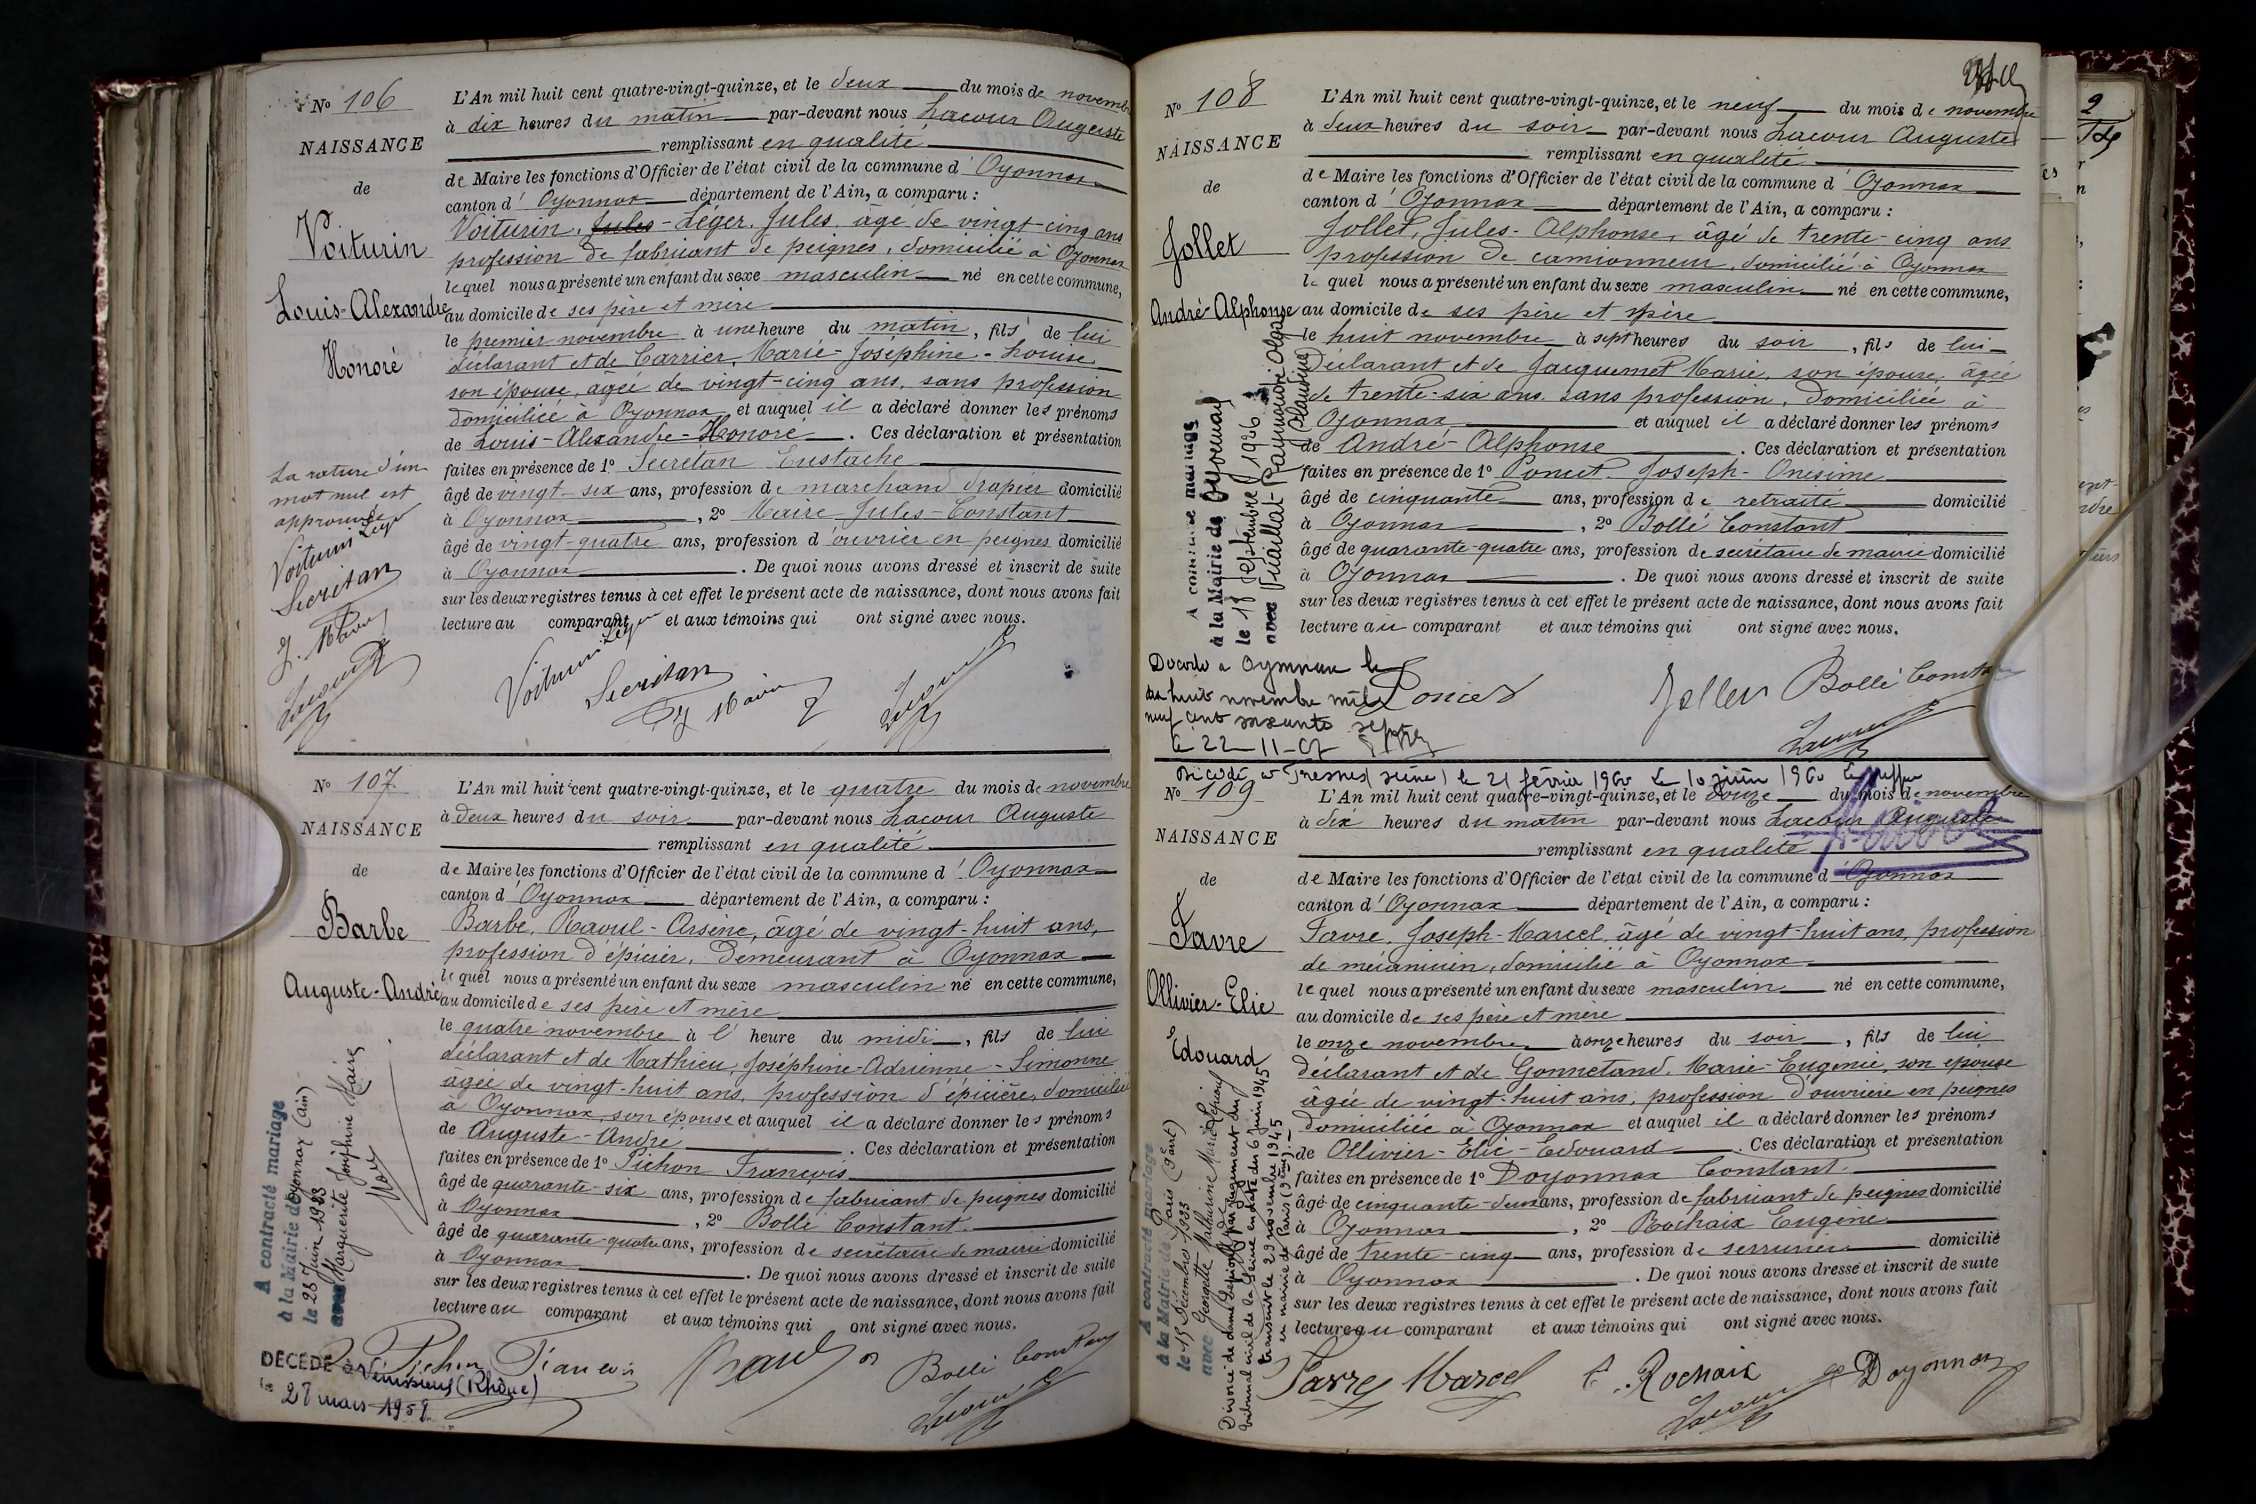 N° 106
NAISSANCE
de
Voiturin
Louis-Alexandre
Honoré
La rature d'un
mot nul est
approuvée
Voiturin Léger
Secretan
J. Maire
Lacour
L'An mil huit cent quatre-vingt-quinze, et le deux du mois de novembre
à dix heures du matin par-devant nous Lacour Auguste
remplissant en qualité
de Maire les fonctions d'Officier de l'état civil de la commune d' Oyonnax
canton d' Oyonnax département de l'Ain, a comparu :
Voiturin, Jules - Léger, Jules, âgé de vingt-cinq ans
profession de fabricant de peignes, domicilié à Oyonnax
lequel nous a présenté un enfant du sexe masculin né en cette commune,
au domicile de ses père et mère
le premier novembre à une heure du matin, fils de lui
déclarant et de Carrier, Marie-Joséphine-Louise
son épouse, âgée de vingt-cinq ans, sans profession
domiciliée à Oyonnax et auquel il a déclaré donner les prénoms
de Louis-Alexandre-Honoré. Ces déclaration et présentation
faites en présence de 1° Secretan Eustache
âgé de vingt-six ans, profession de marchand drapier domicilié
à Oyonnax, 2° Maire Jules-Constant
âgé de vingt-quatre ans, profession d'ouvrier en peignes domicilié
à Oyonnax. De quoi nous avons dressé et inscrit de suite
sur les deux registres tenus à cet effet le présent acte de naissance, dont nous avons fait
lecture au comparant et aux témoins qui ont signé avec nous.
Voiturin Léger
Secretan
J Maire
Lacour
N° 107
NAISSANCE
de
Barbe
Auguste-André
A contracté mariage
à la Mairie de Oyonnax (Ain)
le 28 Juin 1923
avec Marguerite Joséphine Maire
DÉCÉDÉ à Vénissieux (Rhône)
le 27 mars 1959
L'An mil huit cent quatre-vingt-quinze, et le quatre du mois de novembre
à deux heures du soir par-devant nous Lacour Auguste
remplissant en qualité
de Maire les fonctions d'Officier de l'état civil de la commune d' Oyonnax
canton d' Oyonnax département de l'Ain, a comparu :
Barbe, Raoul-Arsène, âgé de vingt-huit ans,
profession d'épicier, demeurant à Oyonnax
lequel nous a présenté un enfant du sexe masculin né en cette commune,
au domicile de ses père et mère
le quatre novembre à l' heure du midi, fils de lui
déclarant et de Mathieu, Joséphine-Adrienne-Simonne
âgée de vingt-huit ans, profession d'épicière, domiciliée
à Oyonnax, son épouse et auquel il a déclaré donner les prénoms
de Auguste-André. Ces déclaration et présentation
faites en présence de 1° Pichon François
âgé de quarante-six ans, profession de fabricant de peignes domicilié
à Oyonnax, 2° Bollé Constant
âgé de quarante-quatre ans, profession de secrétaire de mairie domicilié
à Oyonnax. De quoi nous avons dressé et inscrit de suite
sur les deux registres tenus à cet effet le présent acte de naissance, dont nous avons fait
lecture au comparant et aux témoins qui ont signé avec nous.
Pichon François
Bollé Constant
Lacour
N° 108
NAISSANCE
de
Jollet
André-Alphonse
A contracté mariage
à la Mairie de Oyonnax
le 18 Septembre 1926
avec Vuaillat-Raymonde Olga
Claudine
Décédé à Oyonnax le
dix huit novembre mil
neuf cent soixante sept
le 22-11-67
L'An mil huit cent quatre-vingt-quinze, et le neuf du mois de novembre
à deux heures du soir par-devant nous Lacour Auguste
remplissant en qualité
de Maire les fonctions d'Officier de l'état civil de la commune d' Oyonnax
canton d' Oyonnax département de l'Ain, a comparu :
Jollet, Jules-Alphonse, âgé de trente-cinq ans
profession de camionneur, domicilié à Oyonnax
lequel nous a présenté un enfant du sexe masculin né en cette commune,
au domicile de ses père et mère
le huit novembre à sept heures du soir, fils de lui
déclarant et de Jacquemet Marie, son épouse, âgée
de trente-six ans sans profession, domiciliée à
Oyonnax et auquel il a déclaré donner les prénoms
de André-Alphonse. Ces déclaration et présentation
faites en présence de 1° Poncet Joseph-Onésime
âgé de cinquante ans, profession de retraité domicilié
à Oyonnax, 2° Bollé Constant
âgé de quarante-quatre ans, profession de secrétaire de mairie domicilié
à Oyonnax. De quoi nous avons dressé et inscrit de suite
sur les deux registres tenus à cet effet le présent acte de naissance, dont nous avons fait
lecture au comparant et aux témoins qui ont signé avec nous.
Poncet
Jollet
Bollé Constant
Lacour
Décédé à Fresnes (Seine) le 21 février 1960 Le 10 juin 1960 Le greffier
N° 109
NAISSANCE
de
Favre
Ollivier-Elie
Edouard
A contracté mariage
à la Mairie de Paris (9e arrt)
le 15 Décembre 1923
avec Georgette Mathurine Marie
Divorcé de
tribunal civil de la Seine en date du 6 juin 1945
transcrit le 29 novembre 1945
en mairie de Paris (9ème)
L'An mil huit cent quatre-vingt-quinze, et le douze du mois de novembre
à dix heures du matin par-devant nous Lacour Auguste
remplissant en qualité
de Maire les fonctions d'Officier de l'état civil de la commune d' Oyonnax
canton d' Oyonnax département de l'Ain, a comparu :
Favre, Joseph-Marcel, âgé de vingt-huit ans, profession
de mécanicien, domicilié à Oyonnax
lequel nous a présenté un enfant du sexe masculin né en cette commune,
au domicile de ses père et mère
le onze novembre à onze heures du soir, fils de lui
déclarant et de Gonnetand, Marie-Eugénie, son épouse
âgée de vingt-huit ans, profession d'ouvrière en peignes
domiciliée à Oyonnax et auquel il a déclaré donner les prénoms
de Ollivier-Elie-Edouard. Ces déclaration et présentation
faites en présence de 1° Doyonnax Constant
âgé de cinquante-deux ans, profession de fabricant de peignes domicilié
à Oyonnax, 2° Rochaix Eugène
âgé de trente-cinq ans, profession de serrurier domicilié
à Oyonnax. De quoi nous avons dressé et inscrit de suite
sur les deux registres tenus à cet effet le présent acte de naissance, dont nous avons fait
lecture au comparant et aux témoins qui ont signé avec nous.
Favre Marcel
E. Rochaix
C Doyonnax
Lacour